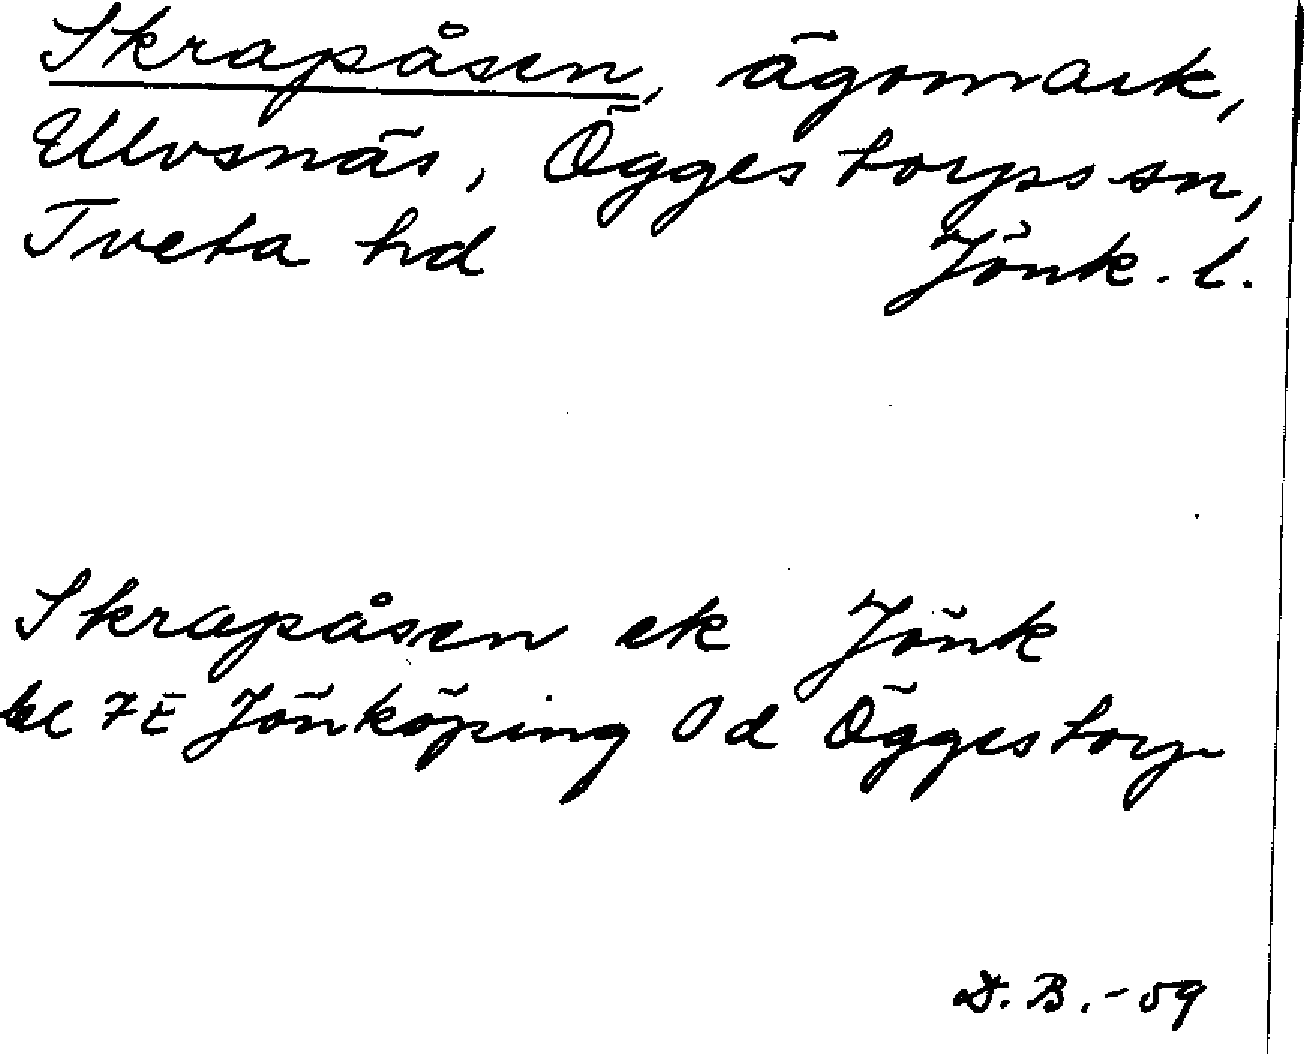 Skrapåsen, ägomark,
Ulvsnäs, Öggestorps sn,
Tveta hd Jönk. l.
Skrapåsen ek Jönk
bl 7E Jönköping 0d Öggestorp
D.B. -59